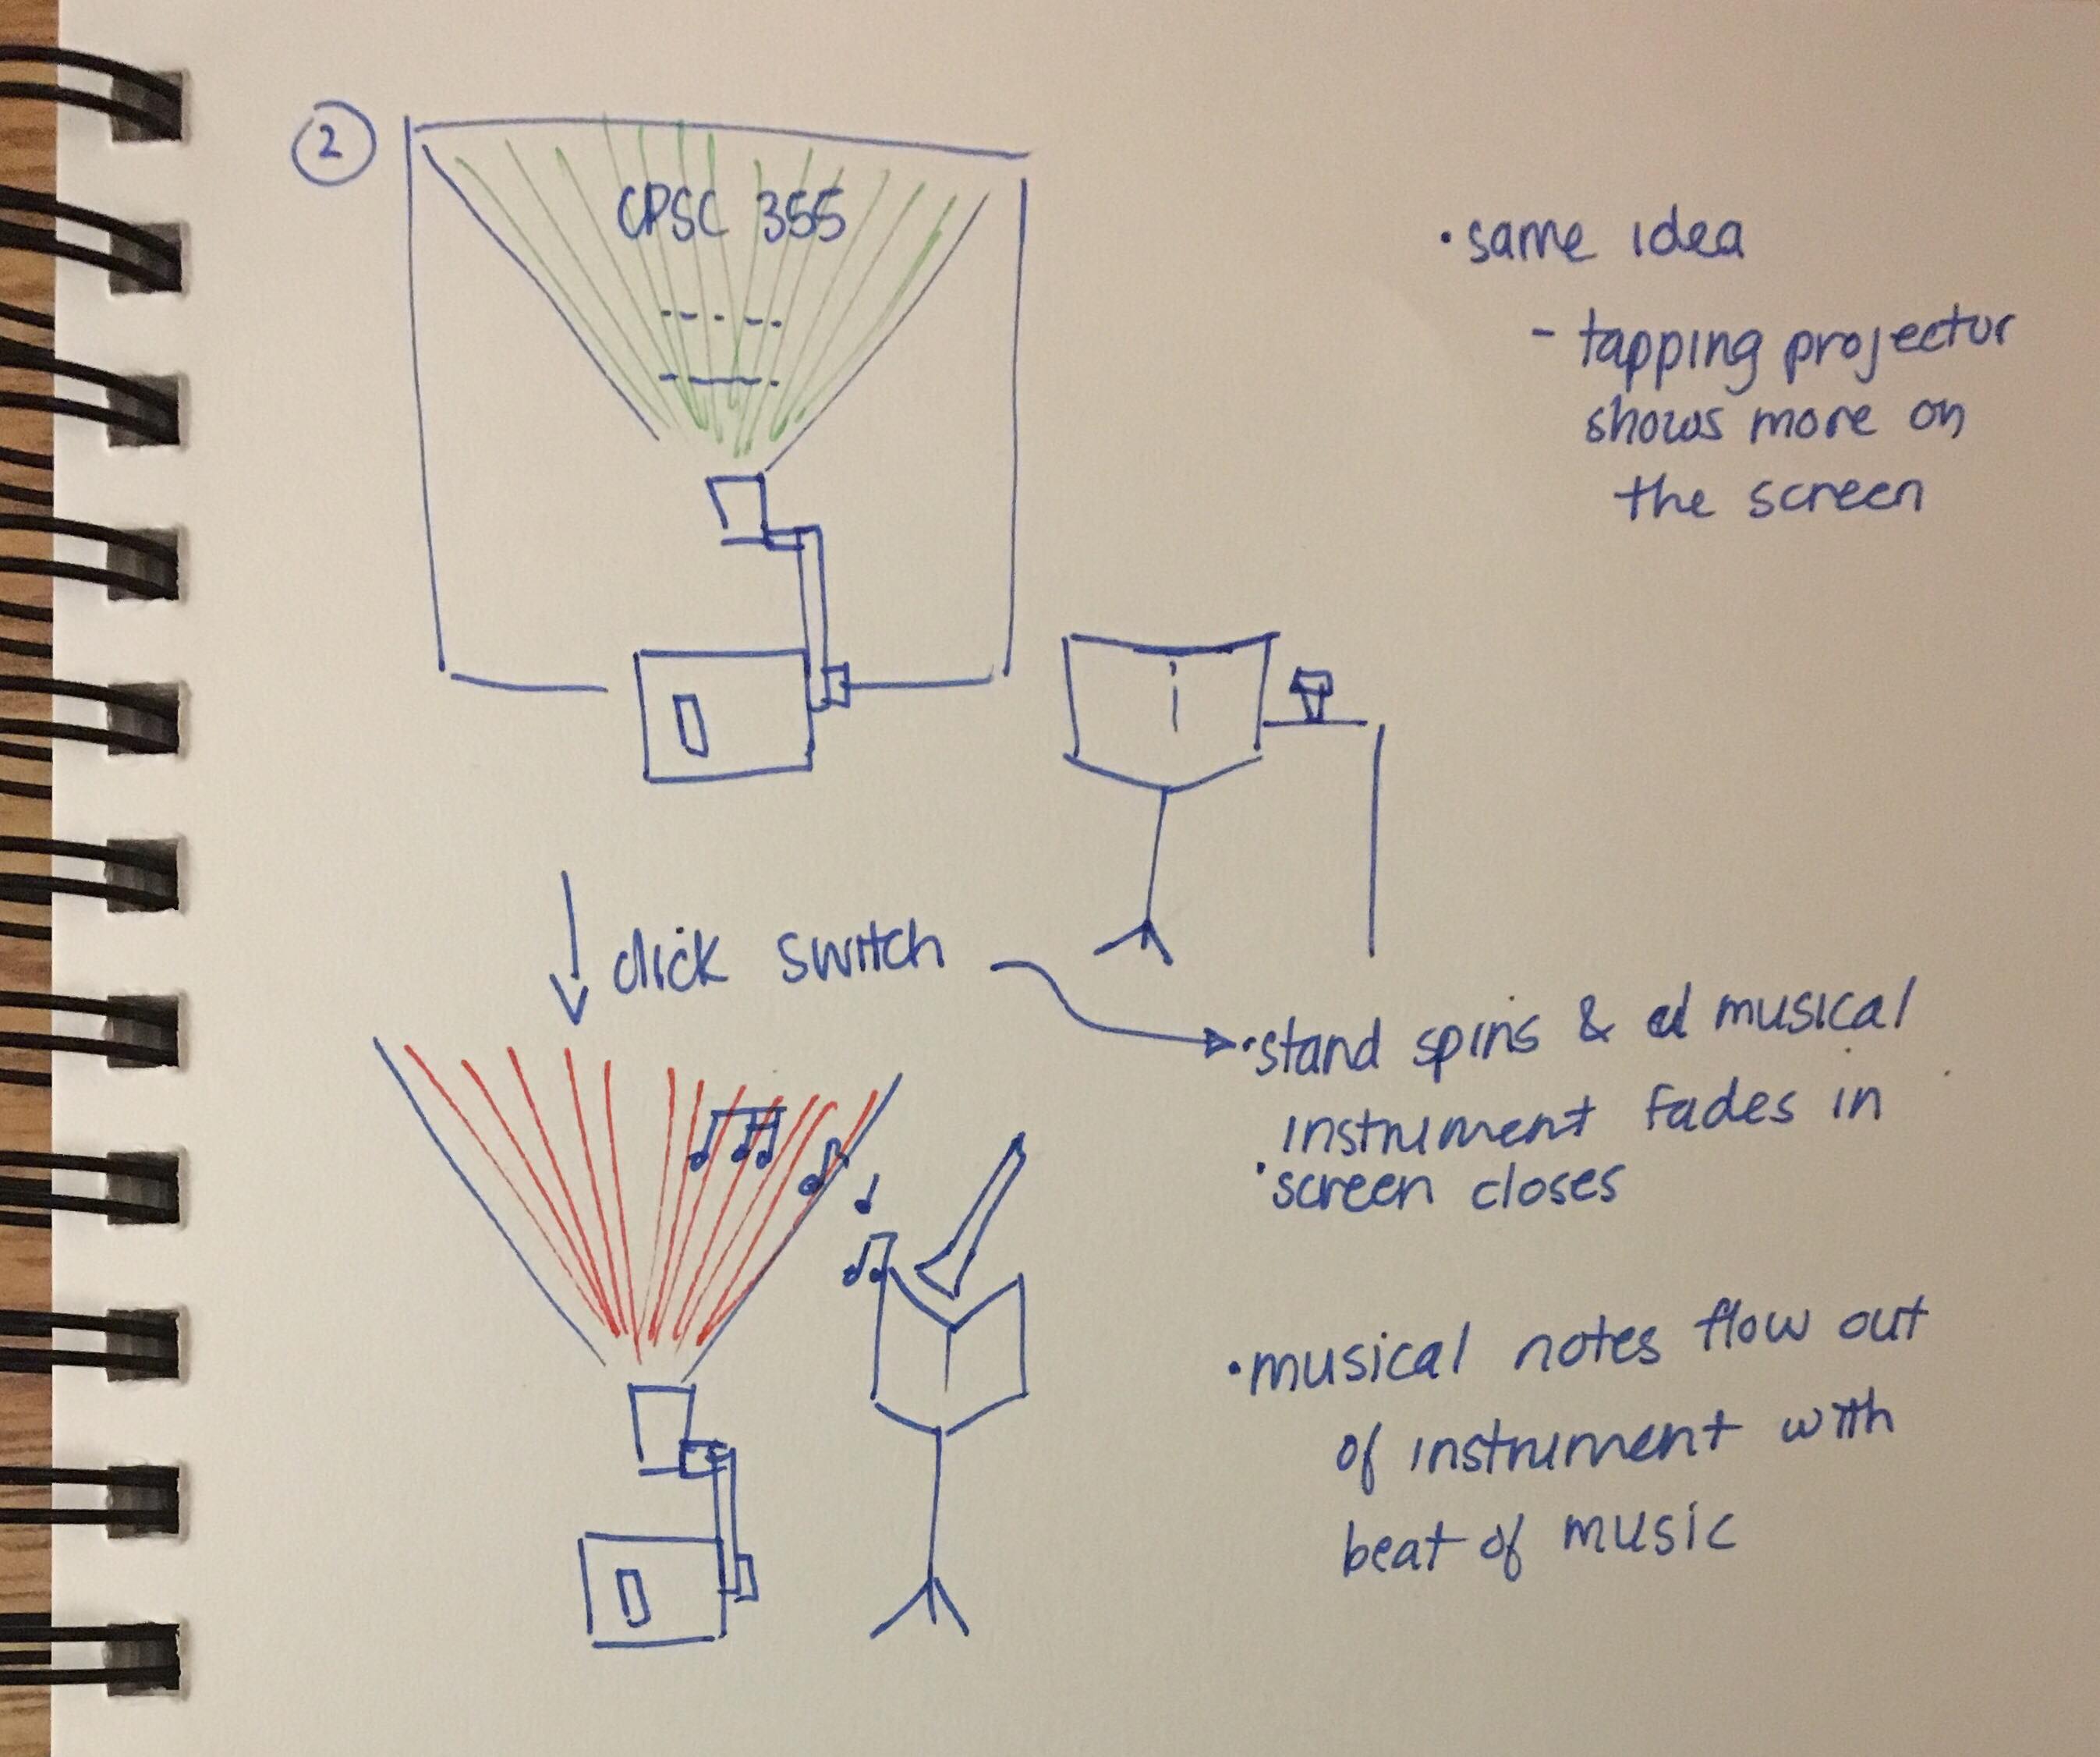 2
CPSC 355
• same idea
- tapping projector
shows more on
the screen
click switch
• stand spins & a musical
instrument fades in
• screen closes
• musical notes flow out
of instrument with
beat of music